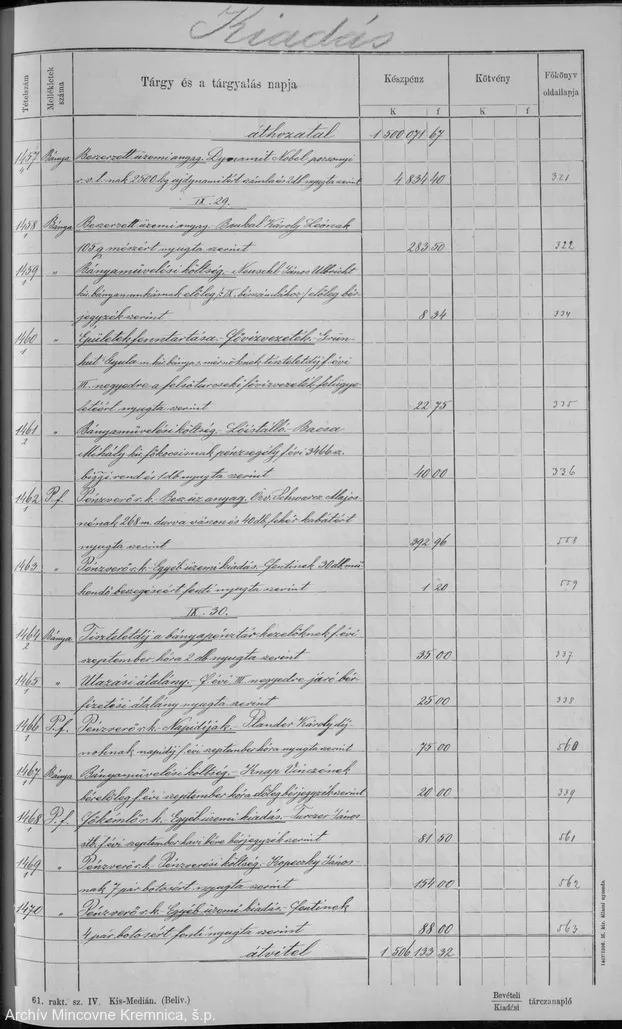 Kiadás
Tételszám
Mellékletek száma
Tárgy és a tárgyalás napja
Készpénz
Kötvény
Főkönyv oldallapja
K f K f
áthozatal 1 500 071 67
1457 Bánya Beszerzett üzemi anyag. Dynamit Nobel pozsonyi
r.v.t.nak 2560 kg ujdynamitért számla és 2 db nyugta szerint 4 834 40 321
IX. 29.
1458 Bánya Beszerzett üzemi anyag. Károly
105 q mészért nyugta szerint 283 50 322
1459 " Bányaművelési költség. János
kir. bányamunkásnak előleg IX. előleg bér-
jegyzék szerint 8 34 334
1460 " Épületek fenntartása. Fővízvezeték. Grün-
hut Gyula m. kir. bányas. mérnöknek tiszteletdíj f. évi
III. negyedre a felsőtarcseki fővízvezeték felügye-
letéért nyugta szerint 22 75 335
1461 " Bányaművelési költség. Lóistálló. Bacsa
Mihály kir. főkocsisnak pénzsegély f. évi 3466 sz.
rend és 1 db nyugta szerint 40 00 336
1462 P.f. Pénzverő r.k. Besz. üz. anyag. Özv. Schwarz Majos-
nénak 268 m. durva vászon és 40 db. fehér kabátért
nyugta szerint 392 96 558
1463 " Pénzverő r.k. Egyéb üzemi kiadás. Fentinek 30 db
kendő beszegéséért fenti nyugta szerint 1 20 559
IX. 30.
1464 Bánya Tiszteletdíj a bányapénztár kezelőknek f. évi
szeptember hóra 2 db nyugta szerint 35 00 337
1465 " Utazási átalány. F. évi III. negyedre járó bér-
fizetési átalány nyugta szerint 25 00 338
1466 P.f. Pénzverő r.k. Napidíjak. Plander Károly díj-
noknak napidíj f. évi szeptember hóra nyugta szerint 75 00 560
1467 Bánya Bányaművelési költség. Knap Vinczének
bérelőleg f. évi szeptember hóra előleg bérjegyzék szerint 20 00 339
1468 P.f. Főkémlő r.k. Egyéb üzemi kiadás. Turczer János
stb. f. évi szeptember havi bére bérjegyzék szerint 81 50 561
1469 " Pénzverő r.k. Pénzverési költség. Kopeczky János-
nak 7 pár botosért nyugta szerint 154 00 562
1470 " Pénzverő r.k. Egyéb üzemi kiadás. Fentinek
4 pár botosért fenti nyugta szerint 88 00 563
átvitel 1 506 133 32
61. rakt. sz. IV. Kis-Medián. (Beliv.)
Bevételi
Kiadási tárczanapló
Archív Mincovne Kremnica, š.p.